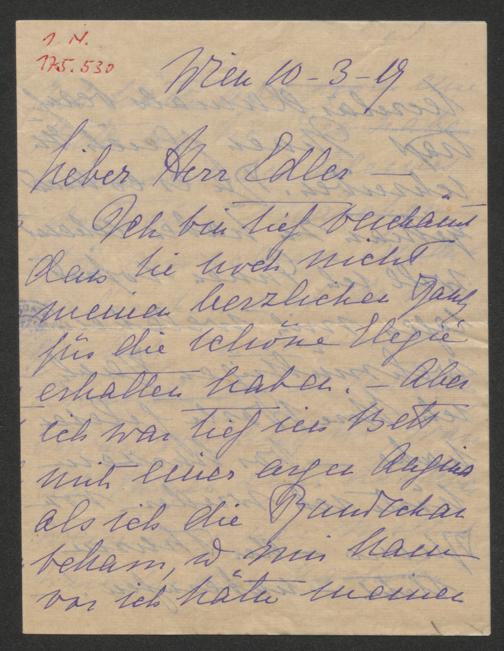 I. N.
175.530
Wien 10-3-19
Lieber Herr Edler –
Ich bin tief beschämt
dass Sie noch nicht
meinen herzlichen Dank
für die schöne Elegie
erhalten haben. – Aber
ich war tief im Bett
mit einer argen Angina
als ich die Rundschau
bekam, u mir kam
vor ich hätte meinen